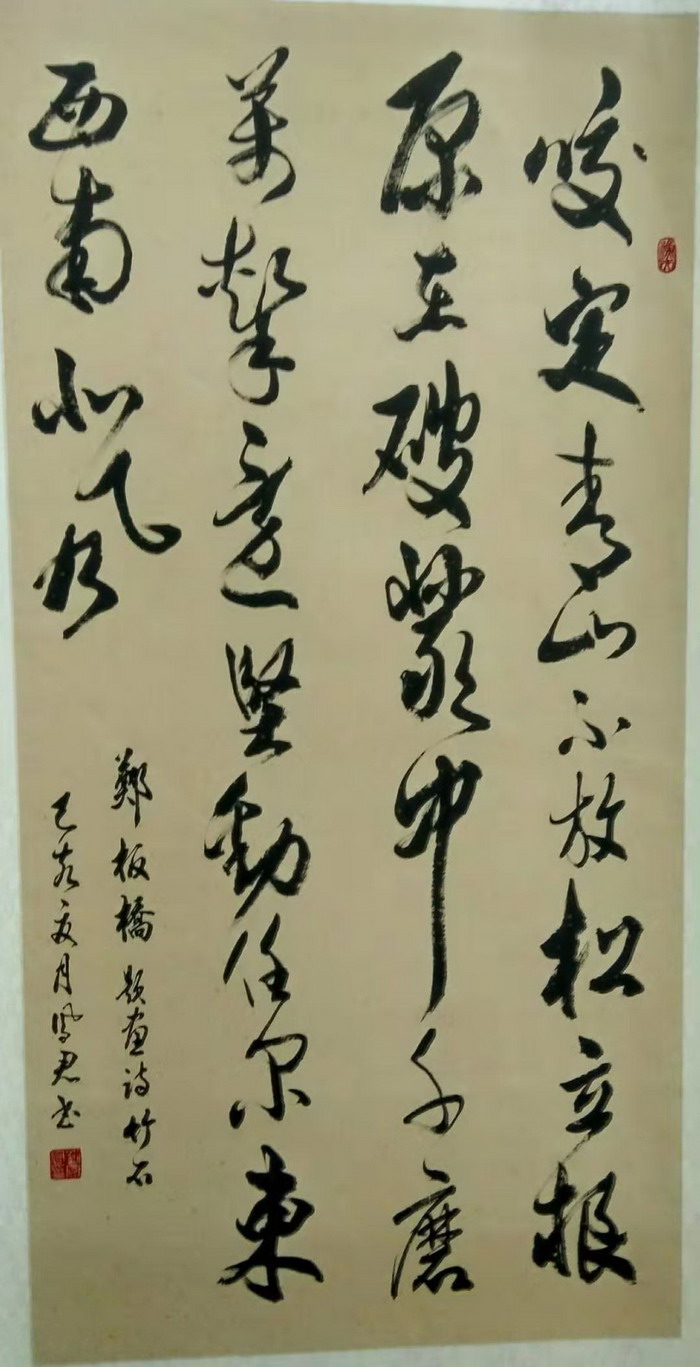 咬定青山不放松立根
原在破岩中千磨
万击还坚劲任尔东
西南北风
郑板桥题画诗竹石
己亥夏月凤君书